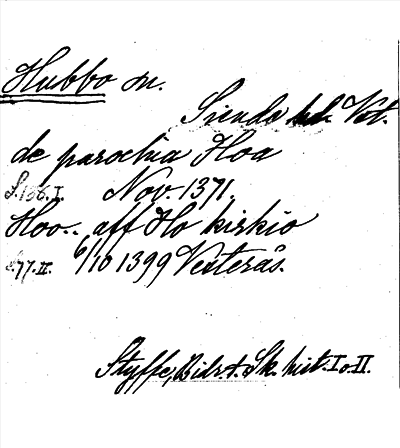 Hubbo sn.
Siende hd. Vst.
de parochia Hoa
S.136.I. Nov. 1371
Hoo.. aff Ho kirkio
S.77.II. 6/10 1399 Vesterås.
Styffe, Bidr. t. Sk. hist. I o. II.